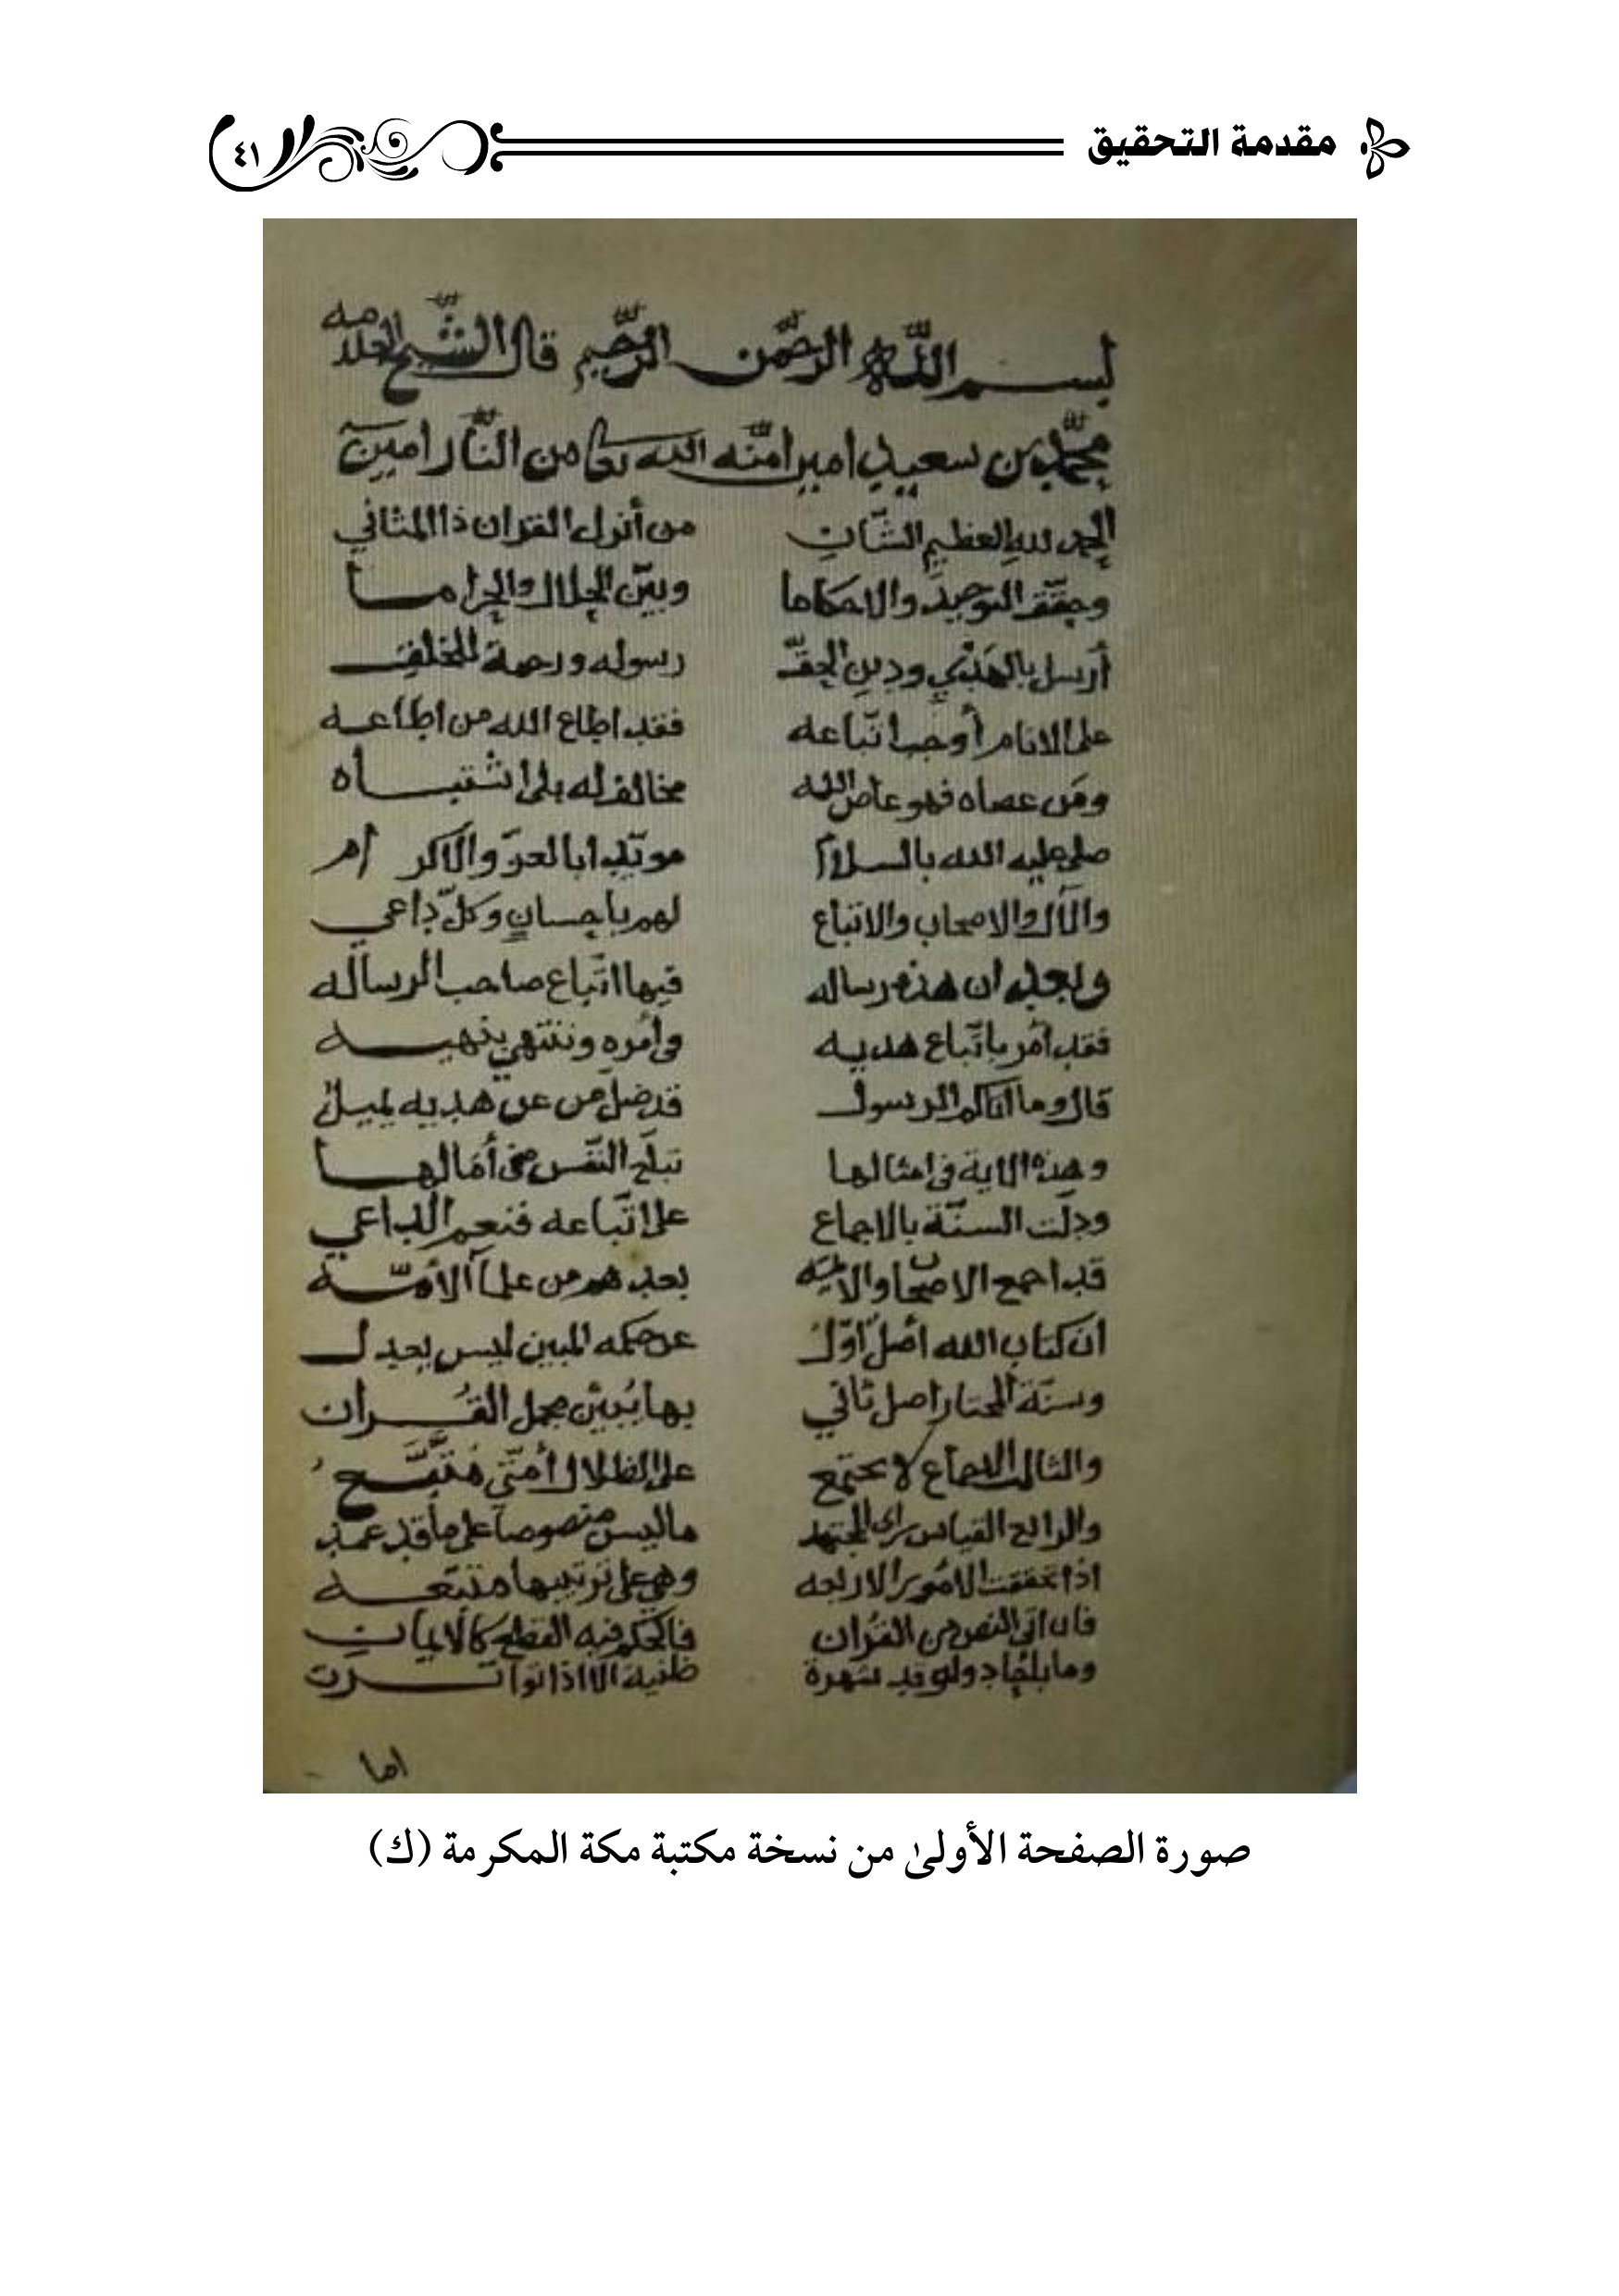 مقدمة التحقيق ٤١
بسم الله الرحمن الرحيم قال الشيخ العلامه
محمد بن سعيد امين امنه الله من النار امين
الحمد لله العظيم الشان من أنزل القران ذا المثاني
وحقق التوحيد والاحكاما وبين الحلال والحراما
أرسل بالهدي ودين الحق رسوله ورحمة للخلق
على الانام أوجب اتباعه فقد اطاع الله من اطاعه
ومن عصاه فهو عاص الله مخالف له بلى اشتباه
صلى عليه الله بالسلام والاكرام
والآل والاصحاب والاتباع لهم باحسان وكل داعي
وبعد ان هذه رساله فيها اتباع صاحب الرساله
فقد أمر باتباع هديه وأمره وننتهي بنهيه
قال وما اتاكم الرسول قد ضل من عن هديه يميل
وهذه الاية في امثالها تبلغ النفس أمالها
ودلت السنة بالاجماع على اتباعه فنعم الداعي
قد اجمع الاصحاب والائمه بعدهم من علما الأمه
ان كتاب الله أصل أول عن حكمه المبين ليس يعدل
وسنة المختار اصل ثاني بها يبين مجمل القران
والثالث الاجماع لا تجتمع على الظلال أمتي
والرابع القياس راى المجتهد ما ليس منصوصا على ما قد عهد
اذا تحققت الامور الاربعه وهي على ترتيبها متبعه
فان اتى النص من القران فالحكم فيه القطع كالايمان
وما بلحاد ولو شهرة ظنية الا اذا تواترت
اما
صورة الصفحة الأولىٰ من نسخة مكتبة مكة المكرمة (ك)